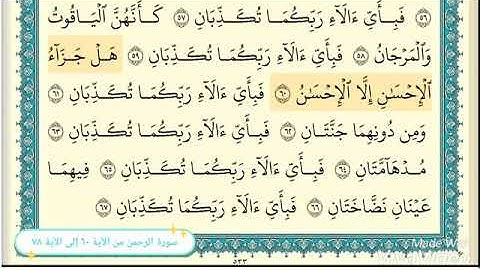 ٥٦ فَبِأَيِّ ءَالَآءِ رَبِّكُمَا تُكَذِّبَانِ ٥٧ كَأَنَّهُنَّ ٱلْيَاقُوتُ
وَٱلْمَرْجَانُ ٥٨ فَبِأَيِّ ءَالَآءِ رَبِّكُمَا تُكَذِّبَانِ ٥٩ هَلْ جَزَآءُ
ٱلْإِحْسَٰنِ إِلَّا ٱلْإِحْسَٰنُ ٦٠ فَبِأَيِّ ءَالَآءِ رَبِّكُمَا تُكَذِّبَانِ ٦١
وَمِن دُونِهِمَا جَنَّتَانِ ٦٢ فَبِأَيِّ ءَالَآءِ رَبِّكُمَا تُكَذِّبَانِ ٦٣
مُدْهَآمَّتَانِ ٦٤ فَبِأَيِّ ءَالَآءِ رَبِّكُمَا تُكَذِّبَانِ ٦٥ فِيهِمَا
عَيْنَانِ نَضَّاخَتَانِ ٦٦ فَبِأَيِّ ءَالَآءِ رَبِّكُمَا تُكَذِّبَانِ ٦٧
سورة الرحمن من الآية ٦٠ إلى الآية ٧٨
٥٣٣
Made W